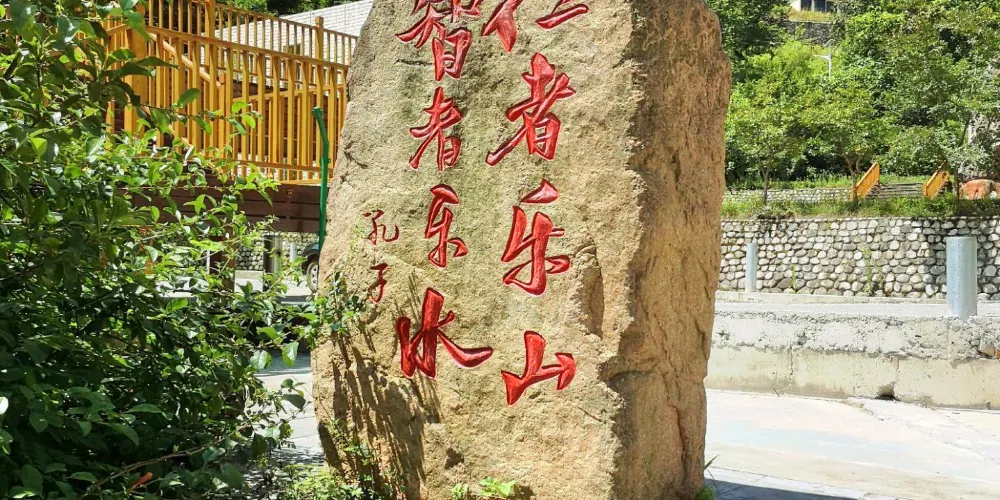 仁者乐山
智者乐水
孔子